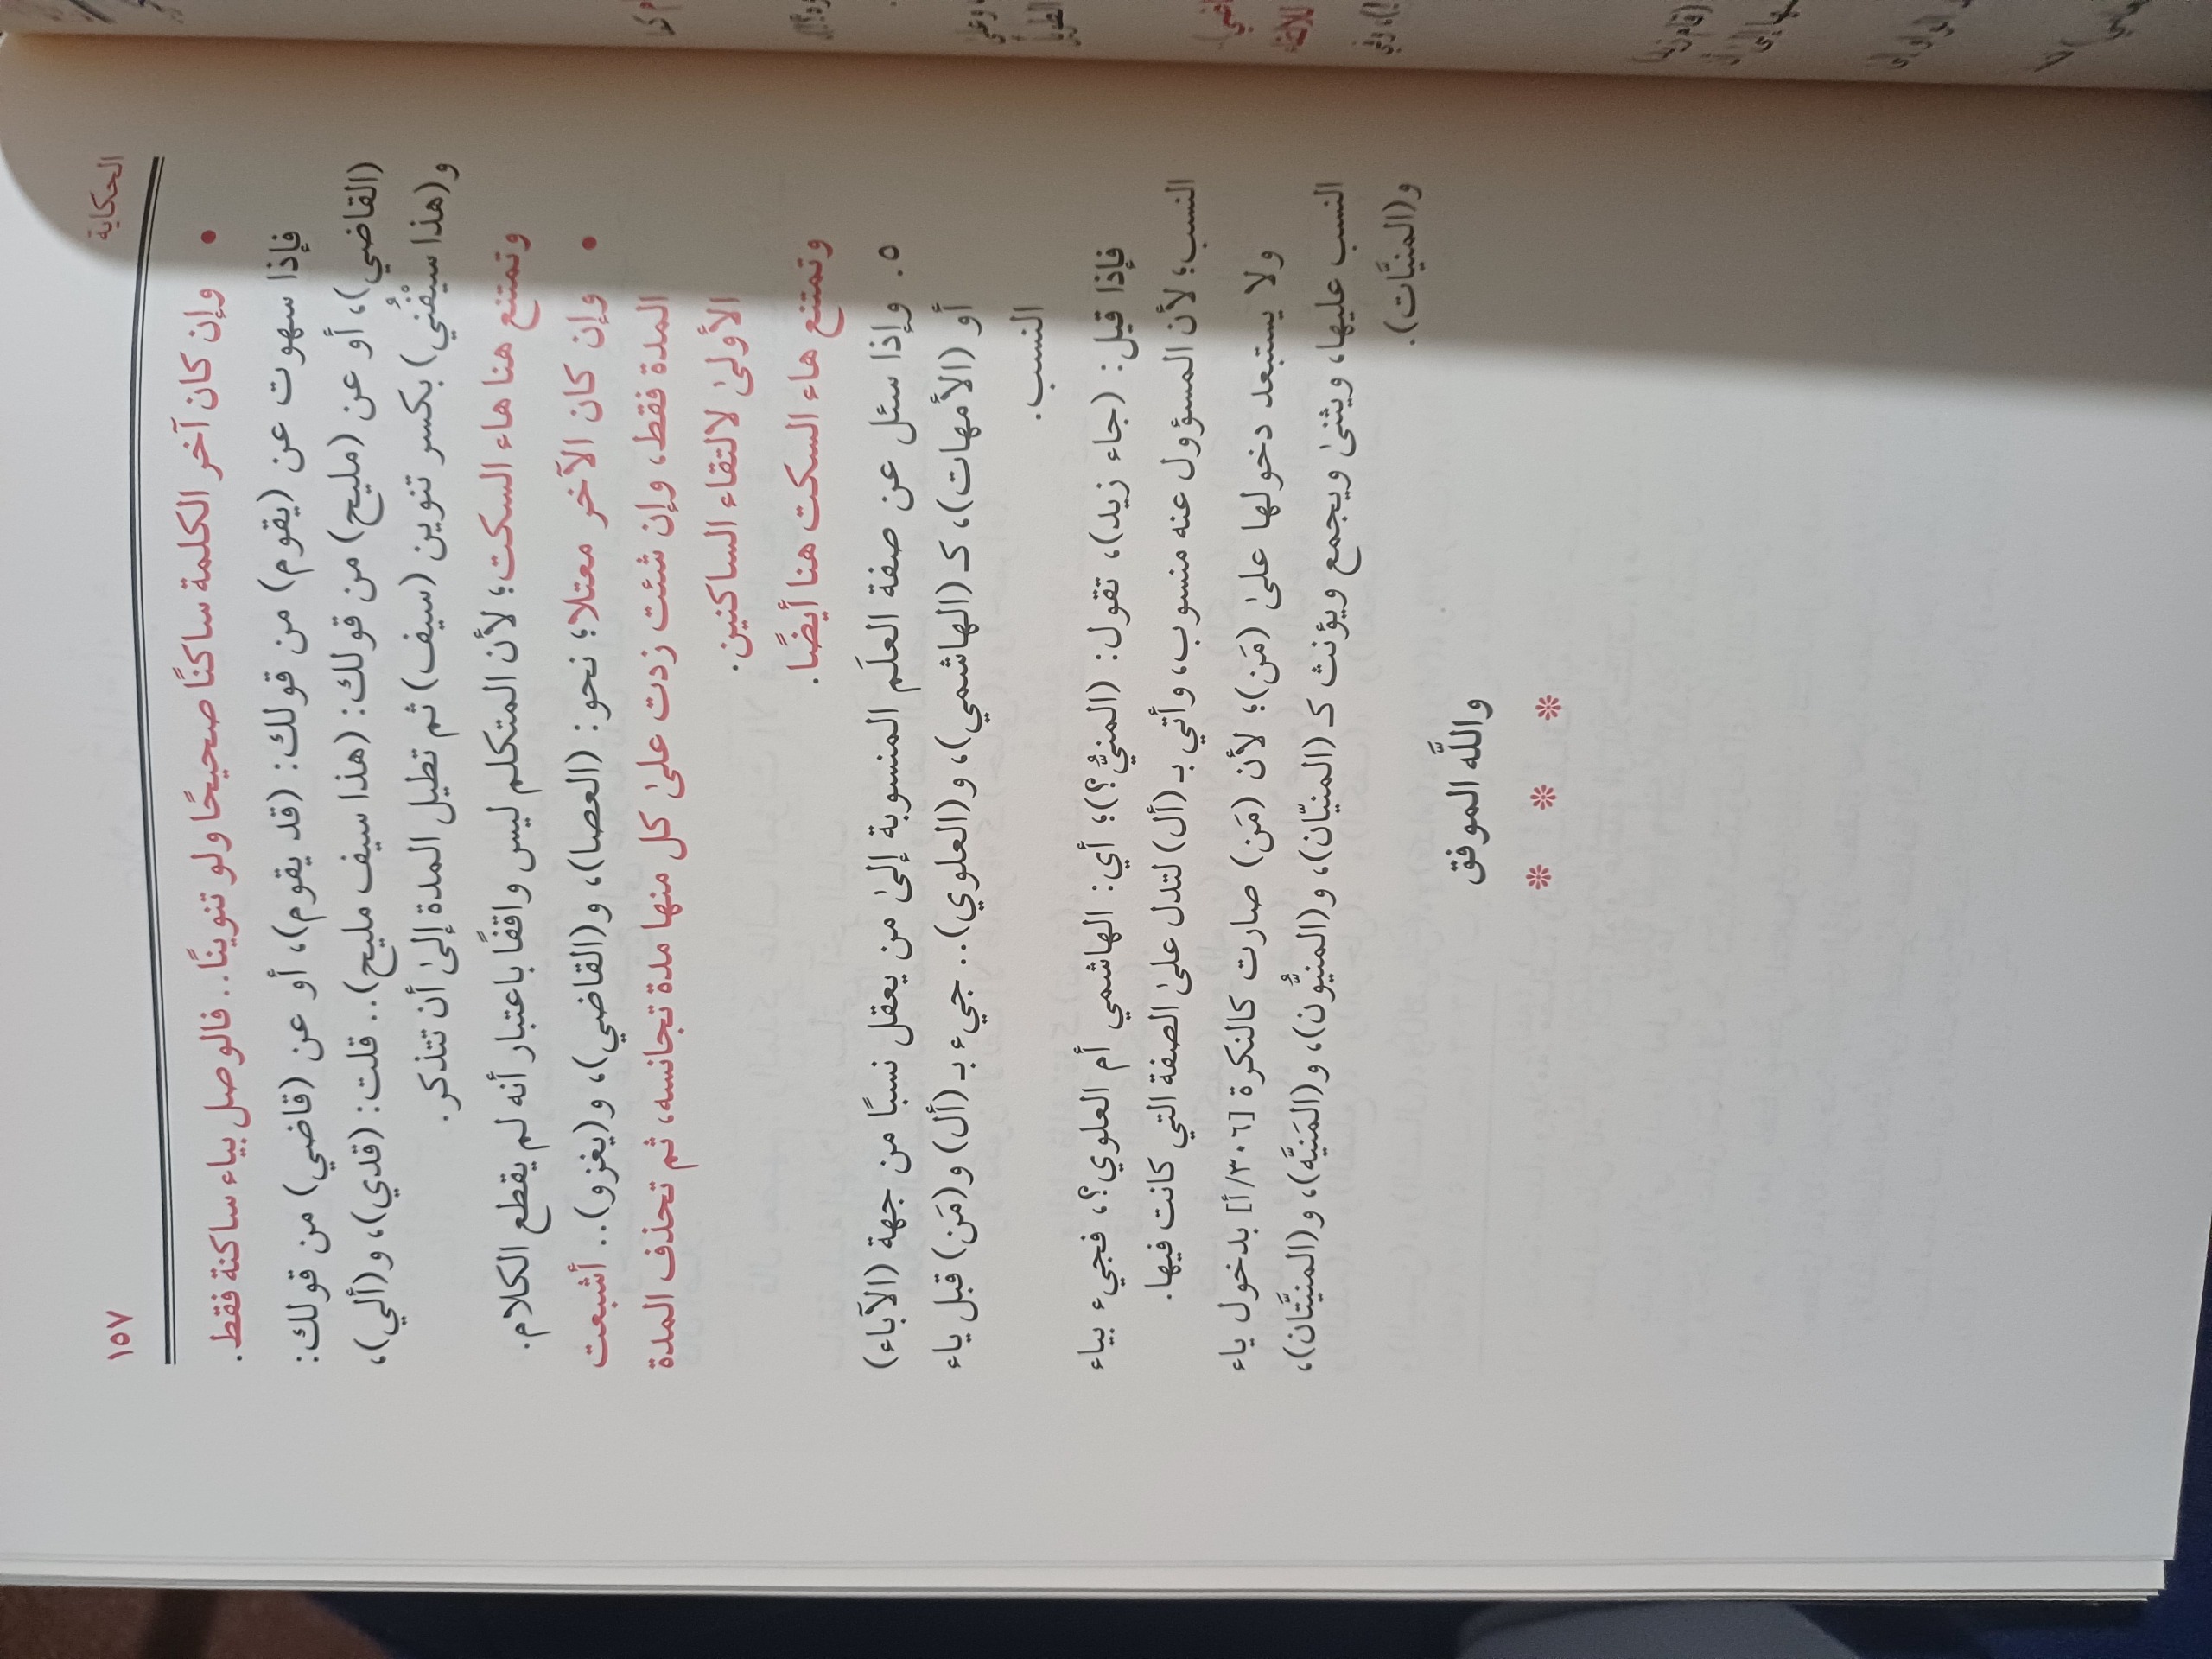 الحكاية ١٥٧
• وإن كان آخر الكلمة ساكنًا صحيحًا ولو تنوينًا.. فالوصل بياء ساكنة فقط.
فإذا سهوت عن (يقوم) من قولك: (قد يقوم)، أو عن (قاضي) من قولك:
(القاضي)، أو عن (مليح) من قولك: (هذا سيف مليح).. قلت: (قدي)، و(ألي)،
و(هذا سيْفُني) بكسر تنوين (سيف) ثم تطيل المدة إلىٰ أن تتذكر.
وتمتنع هنا هاء السكت؛ لأن المتكلم ليس واقفًا باعتبار أنه لم يقطع الكلام.
• وإن كان الآخر معتلا؛ نحو: (العصا)، و(القاضي)، و(يغزو).. أشبعت
المدة فقط، وإن شئت زدت علىٰ كل منها مدة تجانسه، ثم تحذف المدة
الأولىٰ لالتقاء الساكنين.
وتمتنع هاء السكت هنا أيضًا.
٥. وإذا سئل عن صفة العلَم المنسوبة إلىٰ من يعقل نسبًا من جهة (الآباء)
أو (الأمهات)، كـ (الهاشمي)، و(العلوي).. جيء بـ (أل) و(مَن) قبل ياء
النسب.
فإذا قيل: (جاء زيد)، تقول: (المنيُّ؟)؛ أي: الهاشمي أم العلوي؟، فجيء بياء
النسب؛ لأن المسؤول عنه منسوب، وأتي بـ (أل) لتدل علىٰ الصفة التي كانت فيها.
ولا يستبعد دخولها علىٰ (مَن)؛ لأن (مَن) صارت كالنكرة [٣٠٦/أ] بدخول ياء
النسب عليها، ويثنىٰ ويجمع ويؤنث كـ (المنيّان)، و(المنيُّون)، و(المَنيَّه)، و(المنيَّتان)،
و(المنيَّات).
واللَّه الموفق
* * *